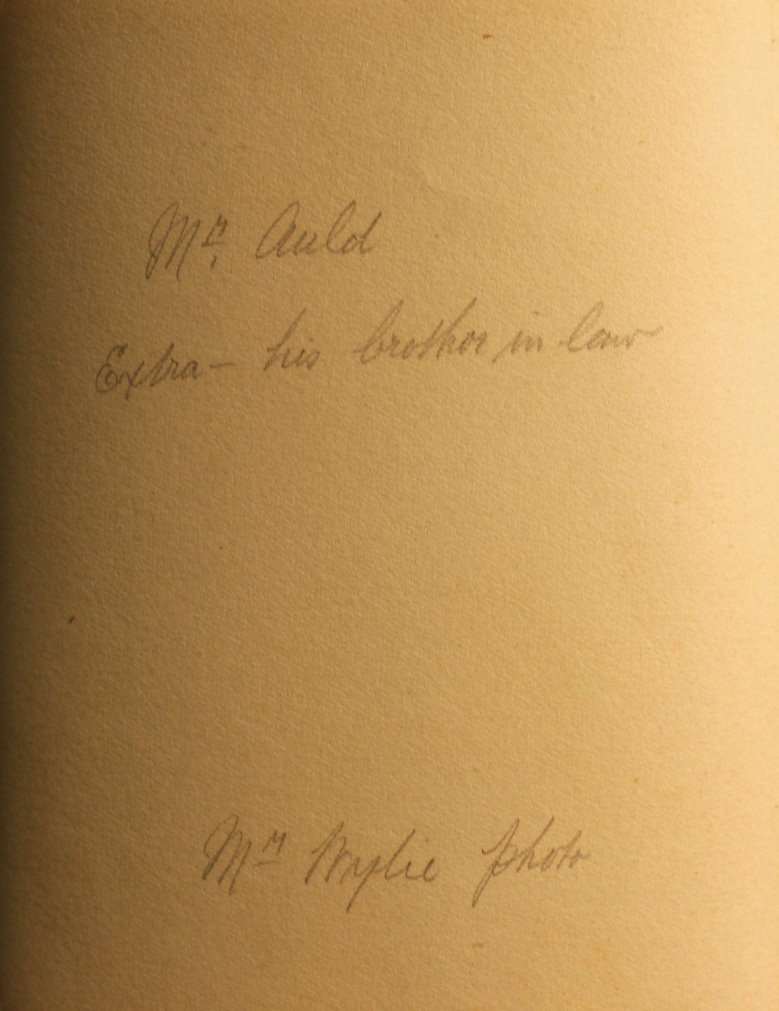 Mr. Auld
Extra - his brother in law
Mr Wylie photo